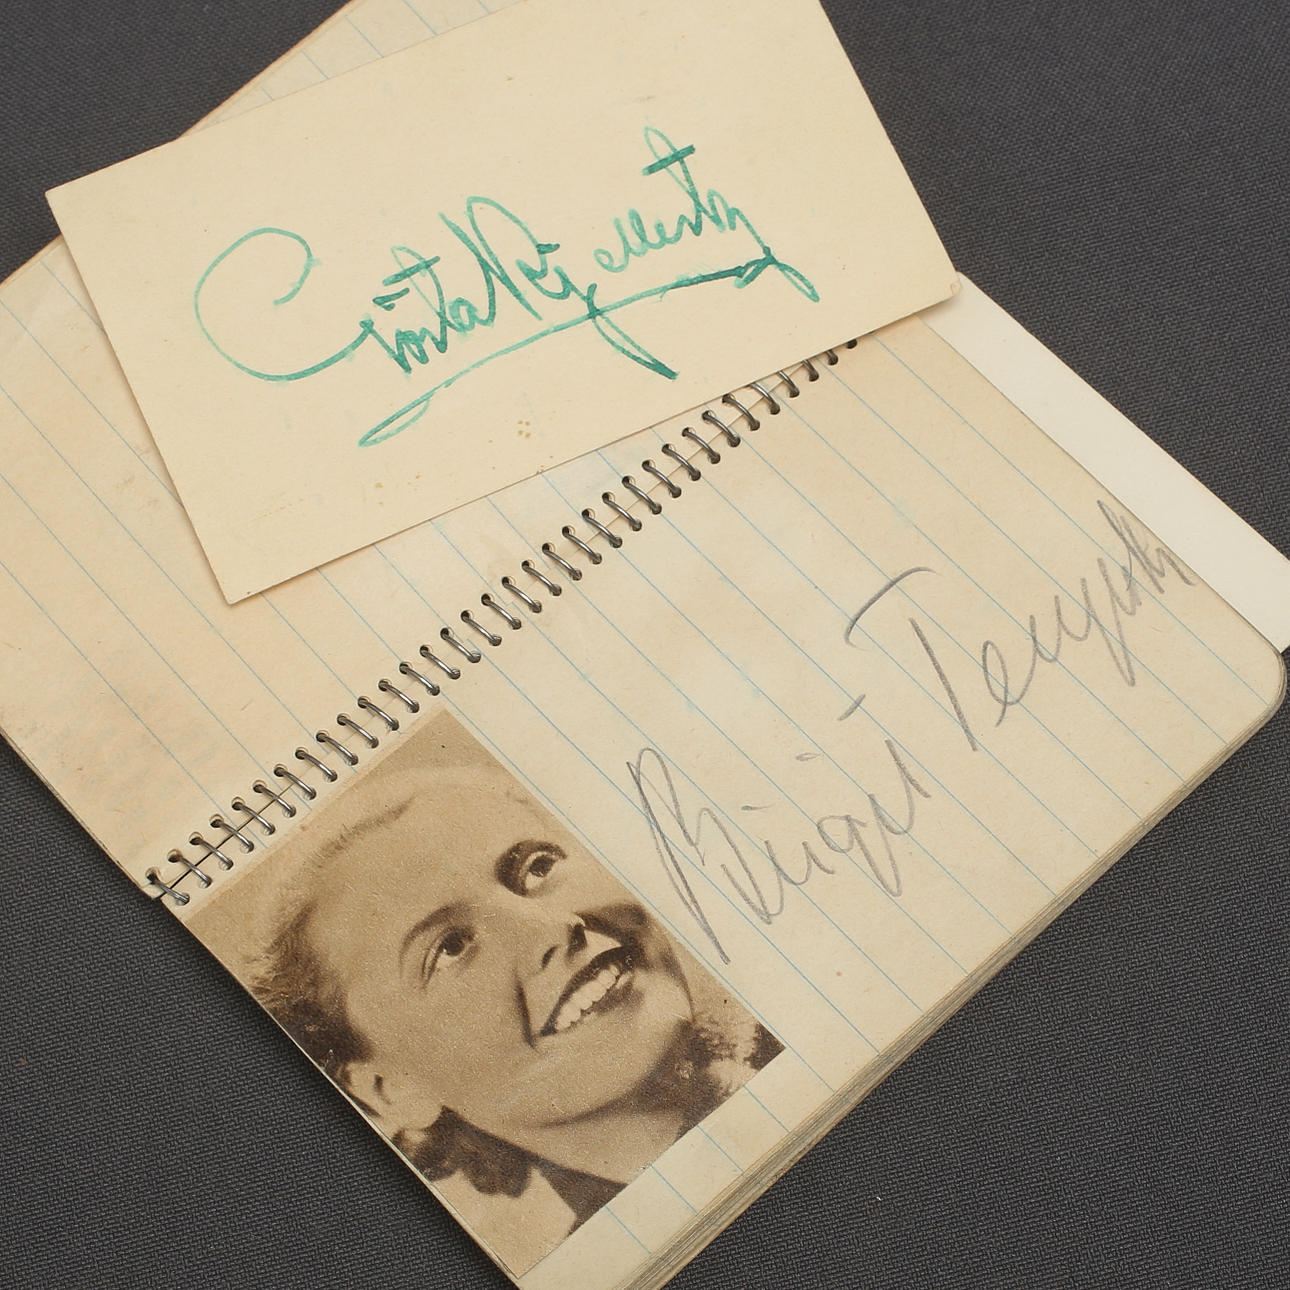 Gösta Kjellertz
Birgit Tengroth